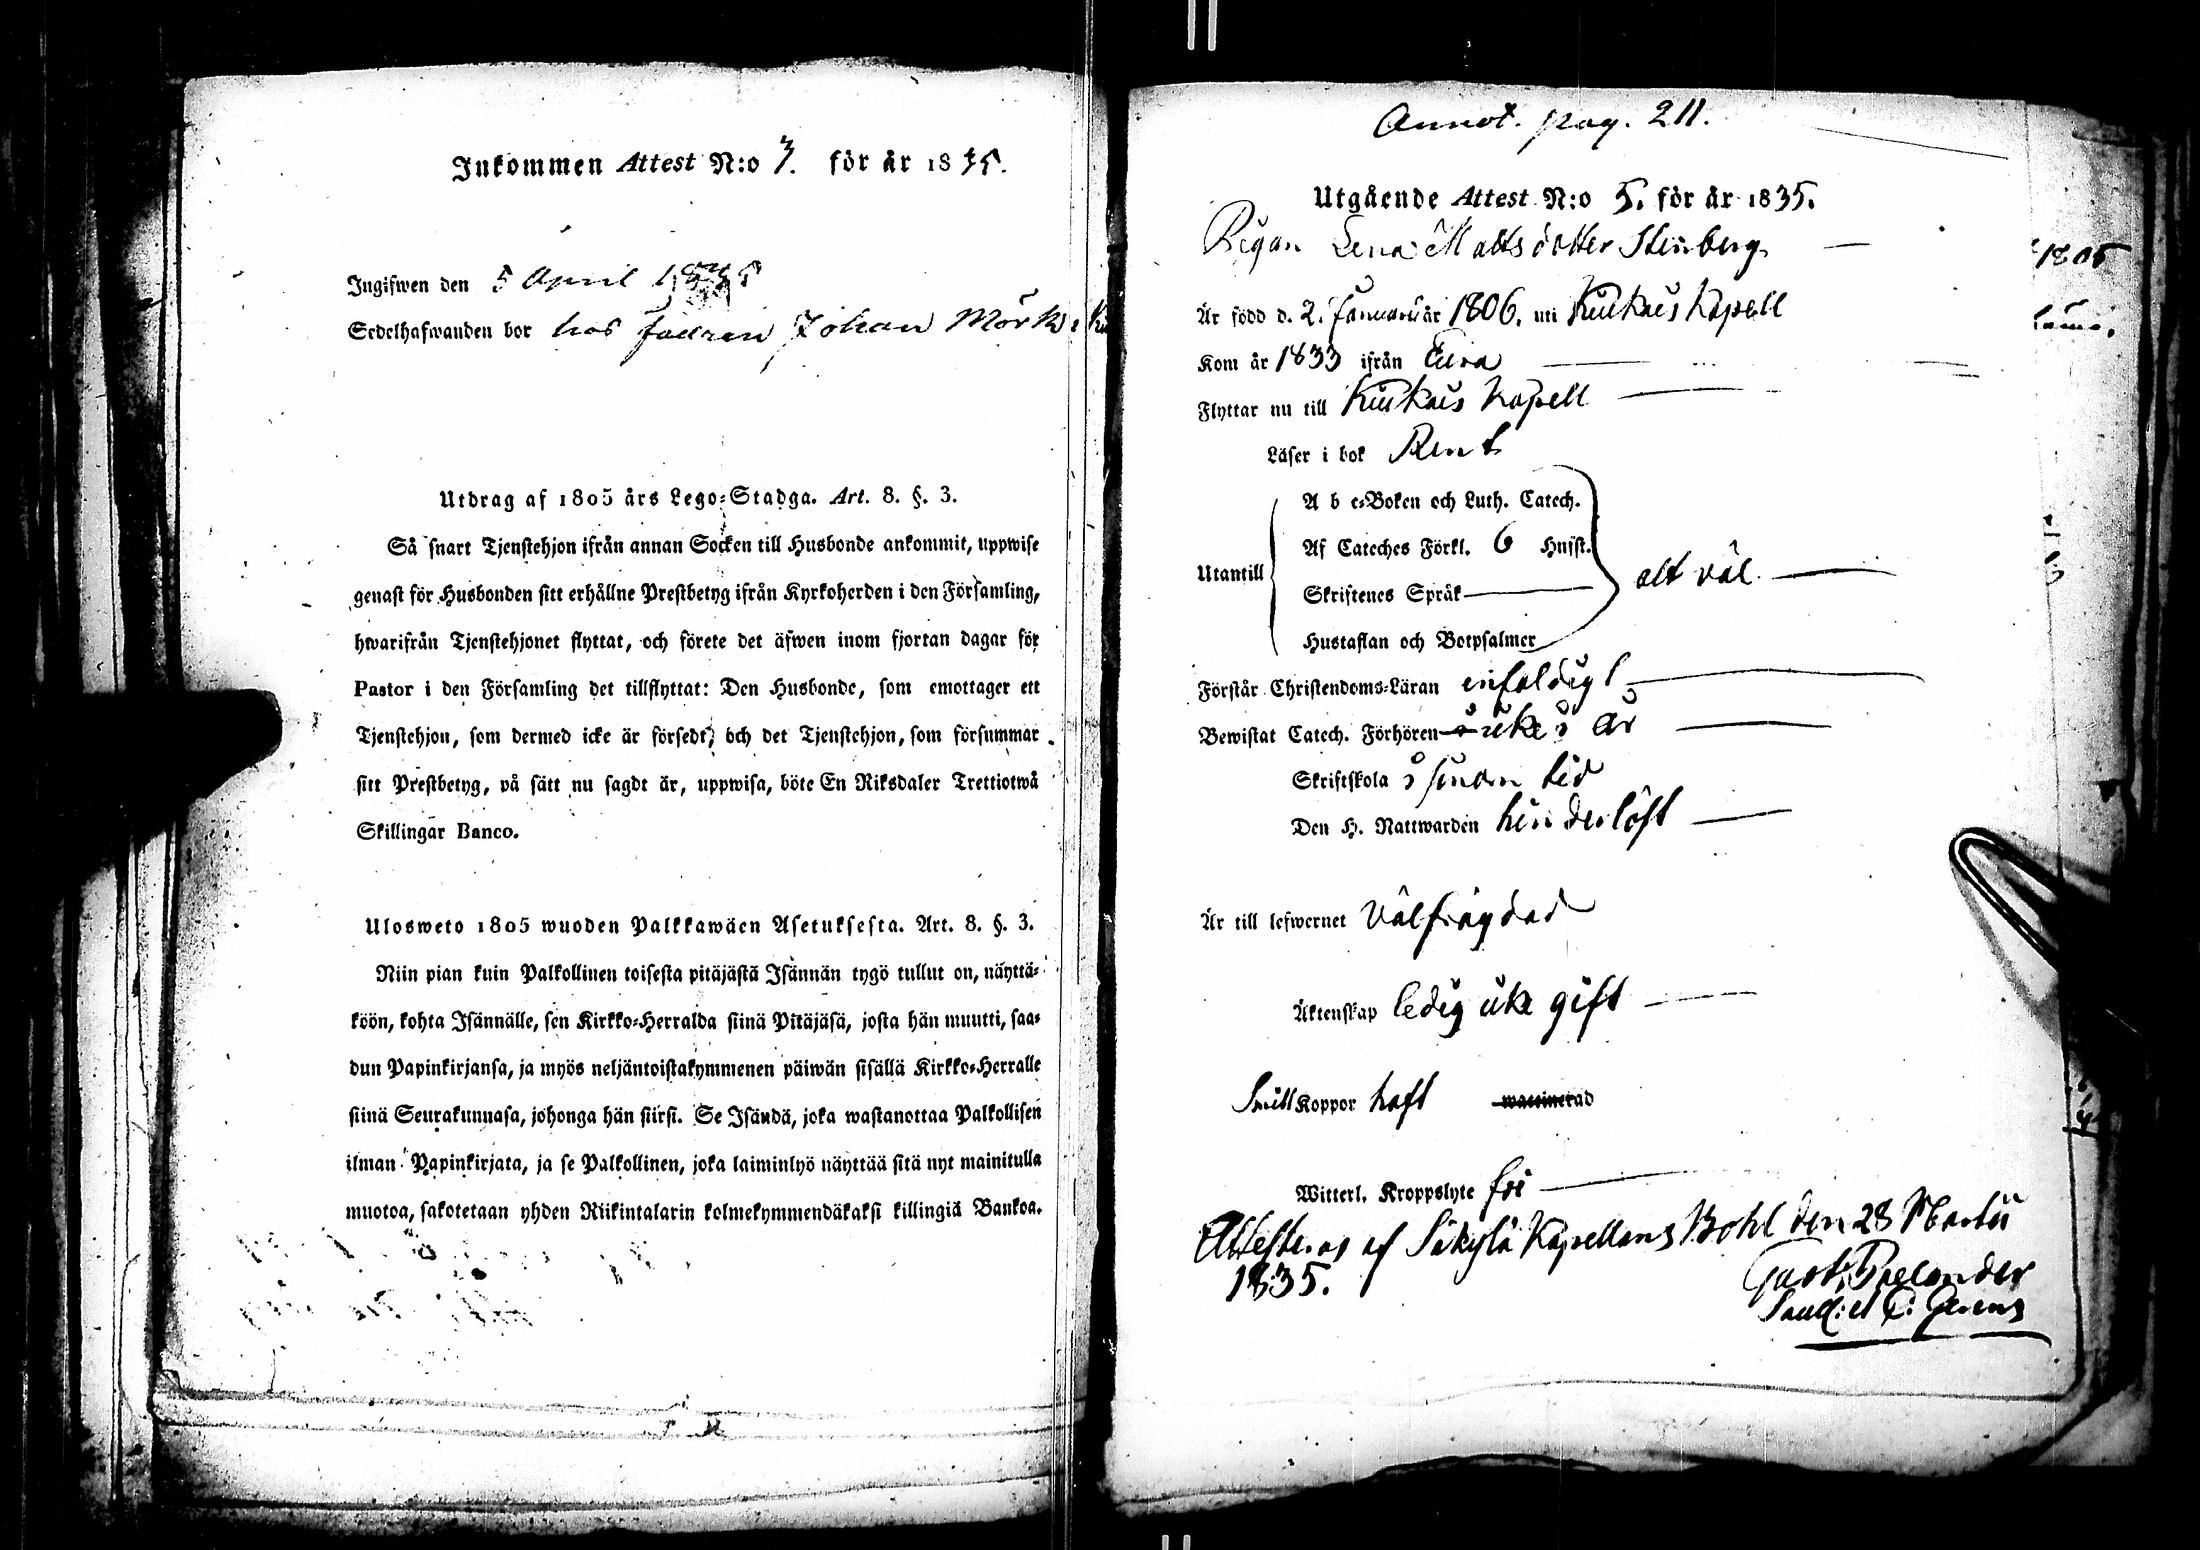 Inkommen Attest N:o 7. för år 1835.
Ingifwen den 5 April 1835
Sedelhafwanden bor hos fadren Johan Mörk i
Utdrag af 1805 års Lego-Stadga. Art. 8. §. 3.
Så snart Tjenstehjon ifrån annan Socken till Husbonde ankommit, uppwise
genast för Husbonden sitt erhållne Prestbetyg ifrån Kyrkoherden i den Församling,
hwarifrån Tjenstehjonet flyttat, och förete det äfwen inom fjortan dagar för
Pastor i den Församling det tillflyttat: Den Husbonde, som emottager ett
Tjenstehjon, som dermed icke är försedt, och det Tjenstehjon, som försummar
sitt Prestbetyg, på sätt nu sagdt är, uppwisa, böte En Riksdaler Trettiotwå
Skillingar Banco.
Ulosweto 1805 wuoden Palkkawäen Asetuksesta. Art. 8. §. 3.
Niin pian kuin Palkollinen toisesta pitäjästä Isännän tygö tullut on, näyttä-
köön, kohta Isännälle, sen Kirkko-Herralda siinä Pitäjäsä, josta hän muutti, saa-
dun Papinkirjansa, ja myös neljäntoistakymmenen päiwän sisällä Kirkko-Herralle
siinä Seurakunnasa, johonga hän siirsi. Se Isändä, joka wastanottaa Palkollisen
ilman Papinkirjata, ja se Palkollinen, joka laiminlyö näyttää sitä nyt mainitulla
muotoa, sakotetaan yhden Riikintalarin kolmekymmendäkaksi killingiä Bankoa.
Annot. pag. 211.
Utgående Attest N:o 5. för år 1835.
Pigan Lena Mattsdotter Stenberg
Är född d. 2. Januarii år 1806. uti Kiukais Kapell
Kom år 1833 ifrån Eura
Flyttar nu till Kiukais Kapell
Läser i bok Rent
A b c-Boken och Luth. Catech.
Af Cateches Förkl. 6 Hufst.
Utantill alt väl
Skriftenes Språk
Hustaflan och Botpsalmer
Förstår Christendoms-Läran enfaldigt
Bewistat Catech. Förhören icke i år
Skriftskola i sinom tid
Den H. Nattwarden hinderlöst
Är till lefwernet Välfrägdad
Äktenskap ledig icke gift
Smitt Koppor haft waccinerad
Witterl. Kroppslyte fri
Attesteras af Säkylä Kapellans Bohl den 28 Martii
1835.
Gust. Polander
Sacell: et C: Gerens
1805